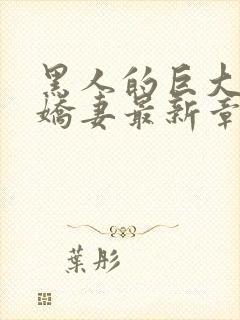 黑人的巨大
嬌妻最新章
葉彤